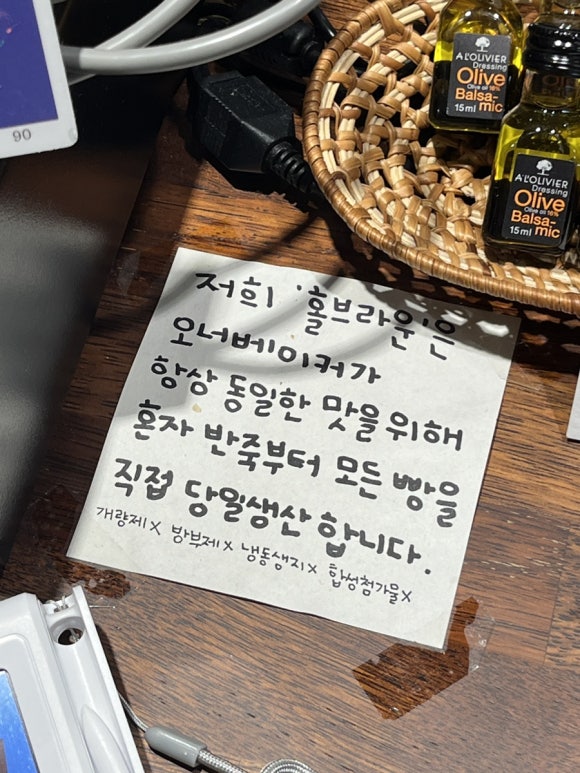 90
A L'OLIVIER
Dressing
Olive
Olive oil 16%
Balsa-
mic
15ml
A L'OLIVIER
Dressing
Olive
Olive oil 16%
Balsa-
mic
15ml
저희 '홀브라운'은
오너베이커가
항상 동일한 맛을 위해
혼자 반죽부터 모든 빵을
직접 당일생산 합니다.
개량제X 방부제X 냉동생지X 합성첨가물X